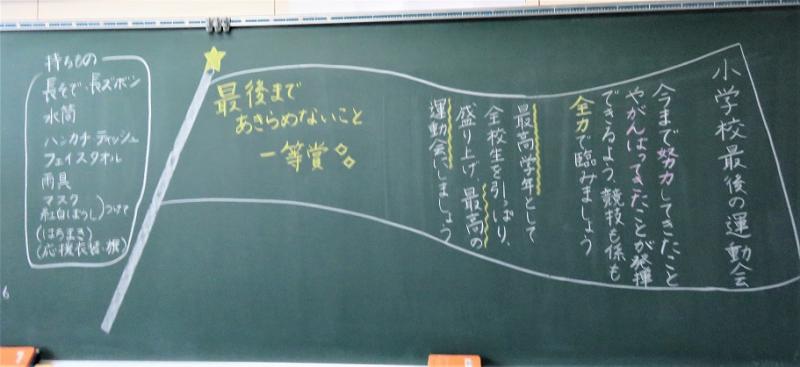 小学校最後の運動会
今まで努力してきたこと
やがんばってきたことが発揮
できるよう、競技も係も
全力で臨みましょう
最高学年として
全校生を引っぱり、
盛り上げ、最高の
運動会にしましょう
最後まで
あきらめないこと
一等賞
持ちもの
長そで・長ズボン
水筒
ハンカチ・ティッシュ
フェイスタオル
雨具
マスク
紅白ぼうし つけて
(はちまき)
(応援衣習・旗)
6